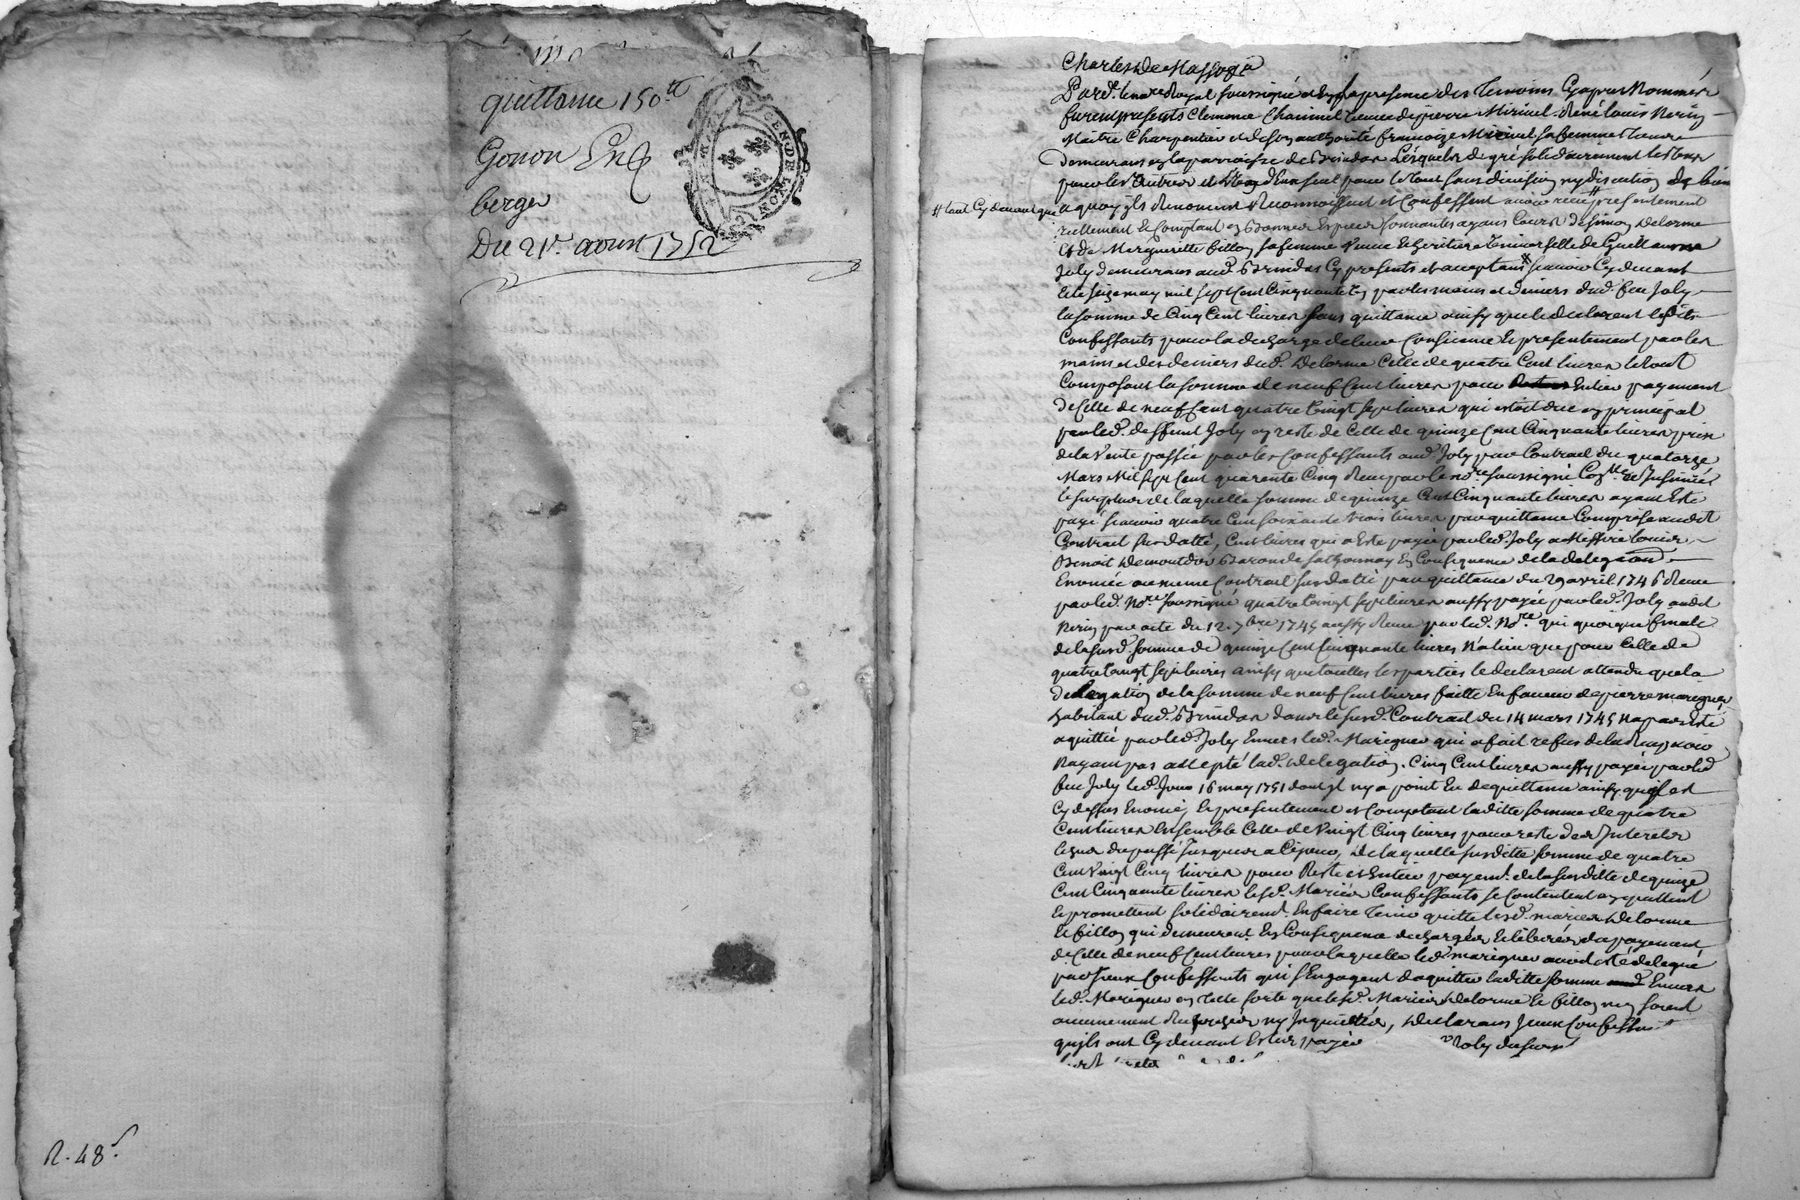 quittance 150.lt
Gonon En
berger
Du 21e. aoust 1752
GEN DE LYON
R. 48.s
Charles de Massoge
Pard. le no.re Royal soussigné et En la presence des Temoins Cy apres Nommés
furent presents Clemence veuve de pierre Miriuel. René Louis Neriy
Maitre Charpentier et de son authorité françoize Miriuel sa femme
Demeurans en la parroisse de Brindas Lesquels de gré solidairement les uns
pour les Autres et d'Eux seul pour le tout sans division ny discution de biens
# tant Cy devant que
a quoy ils renoncent Reconnoissent et Confessent avoir receu # presentement
reellement et Comptant en Bonnes Especes sonnantes ayans Cours de simon Delorme
Et de Margueritte billon sa femme veuve heritiere universelle de Guillaume
Joly demeurans aud. Brindas Cy presents et acceptans scavoir Cy devant
Et le seize may mil sept Cent Cinquante un par les mains et deniers dud. feu Joly
la somme de Cinq Cent livres sans quittance ainsy que le declarent lesdits
Confessants pour la decharge de leur Consience Et presentement par les
mains et des deniers dud. Delorme Celle de quatre Cent livres le tout
Composant la somme de neuf Cent livres pour Entier payement
de Celle de neuf Cent quatre vingt sept livres qui estoit due en principal
par led. deffunt Joly en reste de Celle de quinze Cent Cinquante livres prix
de la Vente passée par les Confessants aud. Joly par Contract du quatorze
Mars Mil sept Cent quarante Cinq Receu par le no.re soussigné Con.llé et Insinué
le surplus de laquelle somme de quinze Cent Cinquante livres ayant Esté
payé scavoir quatre Cent soixante trois livres par quittance Comprise audit
Contract susdatté, Cent livres qui a Esté payée par led. Joly a Messire Louis
Benoit Demontdor Baron de En Consequence de la delegaôn
Enoncée au meme Contract susdatté par quittance du 29 avril 1746 Receue
par led. No.re soussigné quatre vingt sept livres aussy payée par led. Joly audit
Neriy par acte du 12. 7bre 1745 aussy Receu par led. No.re qui quoique finale
de la susd. somme de quinze Cent Cinquante livres N'a lieu que pour Celle de
quatre vingt sept livres ainsy que touttes les parties le declarent attendu que la
Delegation de la somme de neuf Cent livres faitte En faveur de pierre marignier
habitant dud. Brindas dans le susd. Contract du 14 mars 1745 n'a pas Esté
aquittée par led. Joly Envers led. Marignier qui a fait refus de la Recevoir
N'ayant pas accepté lad. Delegation. Cinq Cent livres aussy payée par led
feu Joly led. Jour 16 may 1751 dont il n'y a point Eu de quittance ainsy qu'il est
Cy dessus Enoncé, Et presentement et Comptant laditte somme de quatre
Cent livres Ensemble Celle de Vingt Cinq livres pour reste des Interets
Echus du passé Jusques a Ce jour, De laquelle susditte somme de quatre
Cent Vingt Cinq livres pour Reste et Entier payem.t de la susditte de quinze
Cent Cinquante livres lesd. Mariés Confessants se Contentent en quittent
Et promettent solidairem.t En faire Tenir quitte lesd. mariés Delorme
Et billon qui demeurent En Consequence dechargés Et liberés du payement
de Celle de neuf Cent livres pour laquelle led. marignier avoit été delegué
par Iceux Confessants qui s'Engagent d'aquitter laditte somme Envers
led. Marignier en telle sorte que lesd. Mariés Delorme Et billon n'en soient
aucunement Recherchés ny Inquiettés, Declarans Iceux Confessants
qu'ils ont Cy devant Esté payés